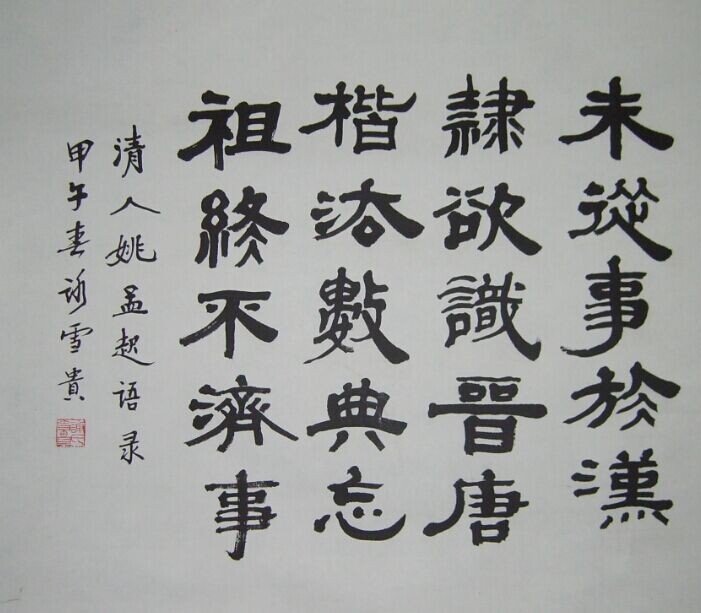 未從事於漢
隸欲識晉唐
楷法數典忘
祖終不濟事
清人姚孟起語录
甲午春雪貴